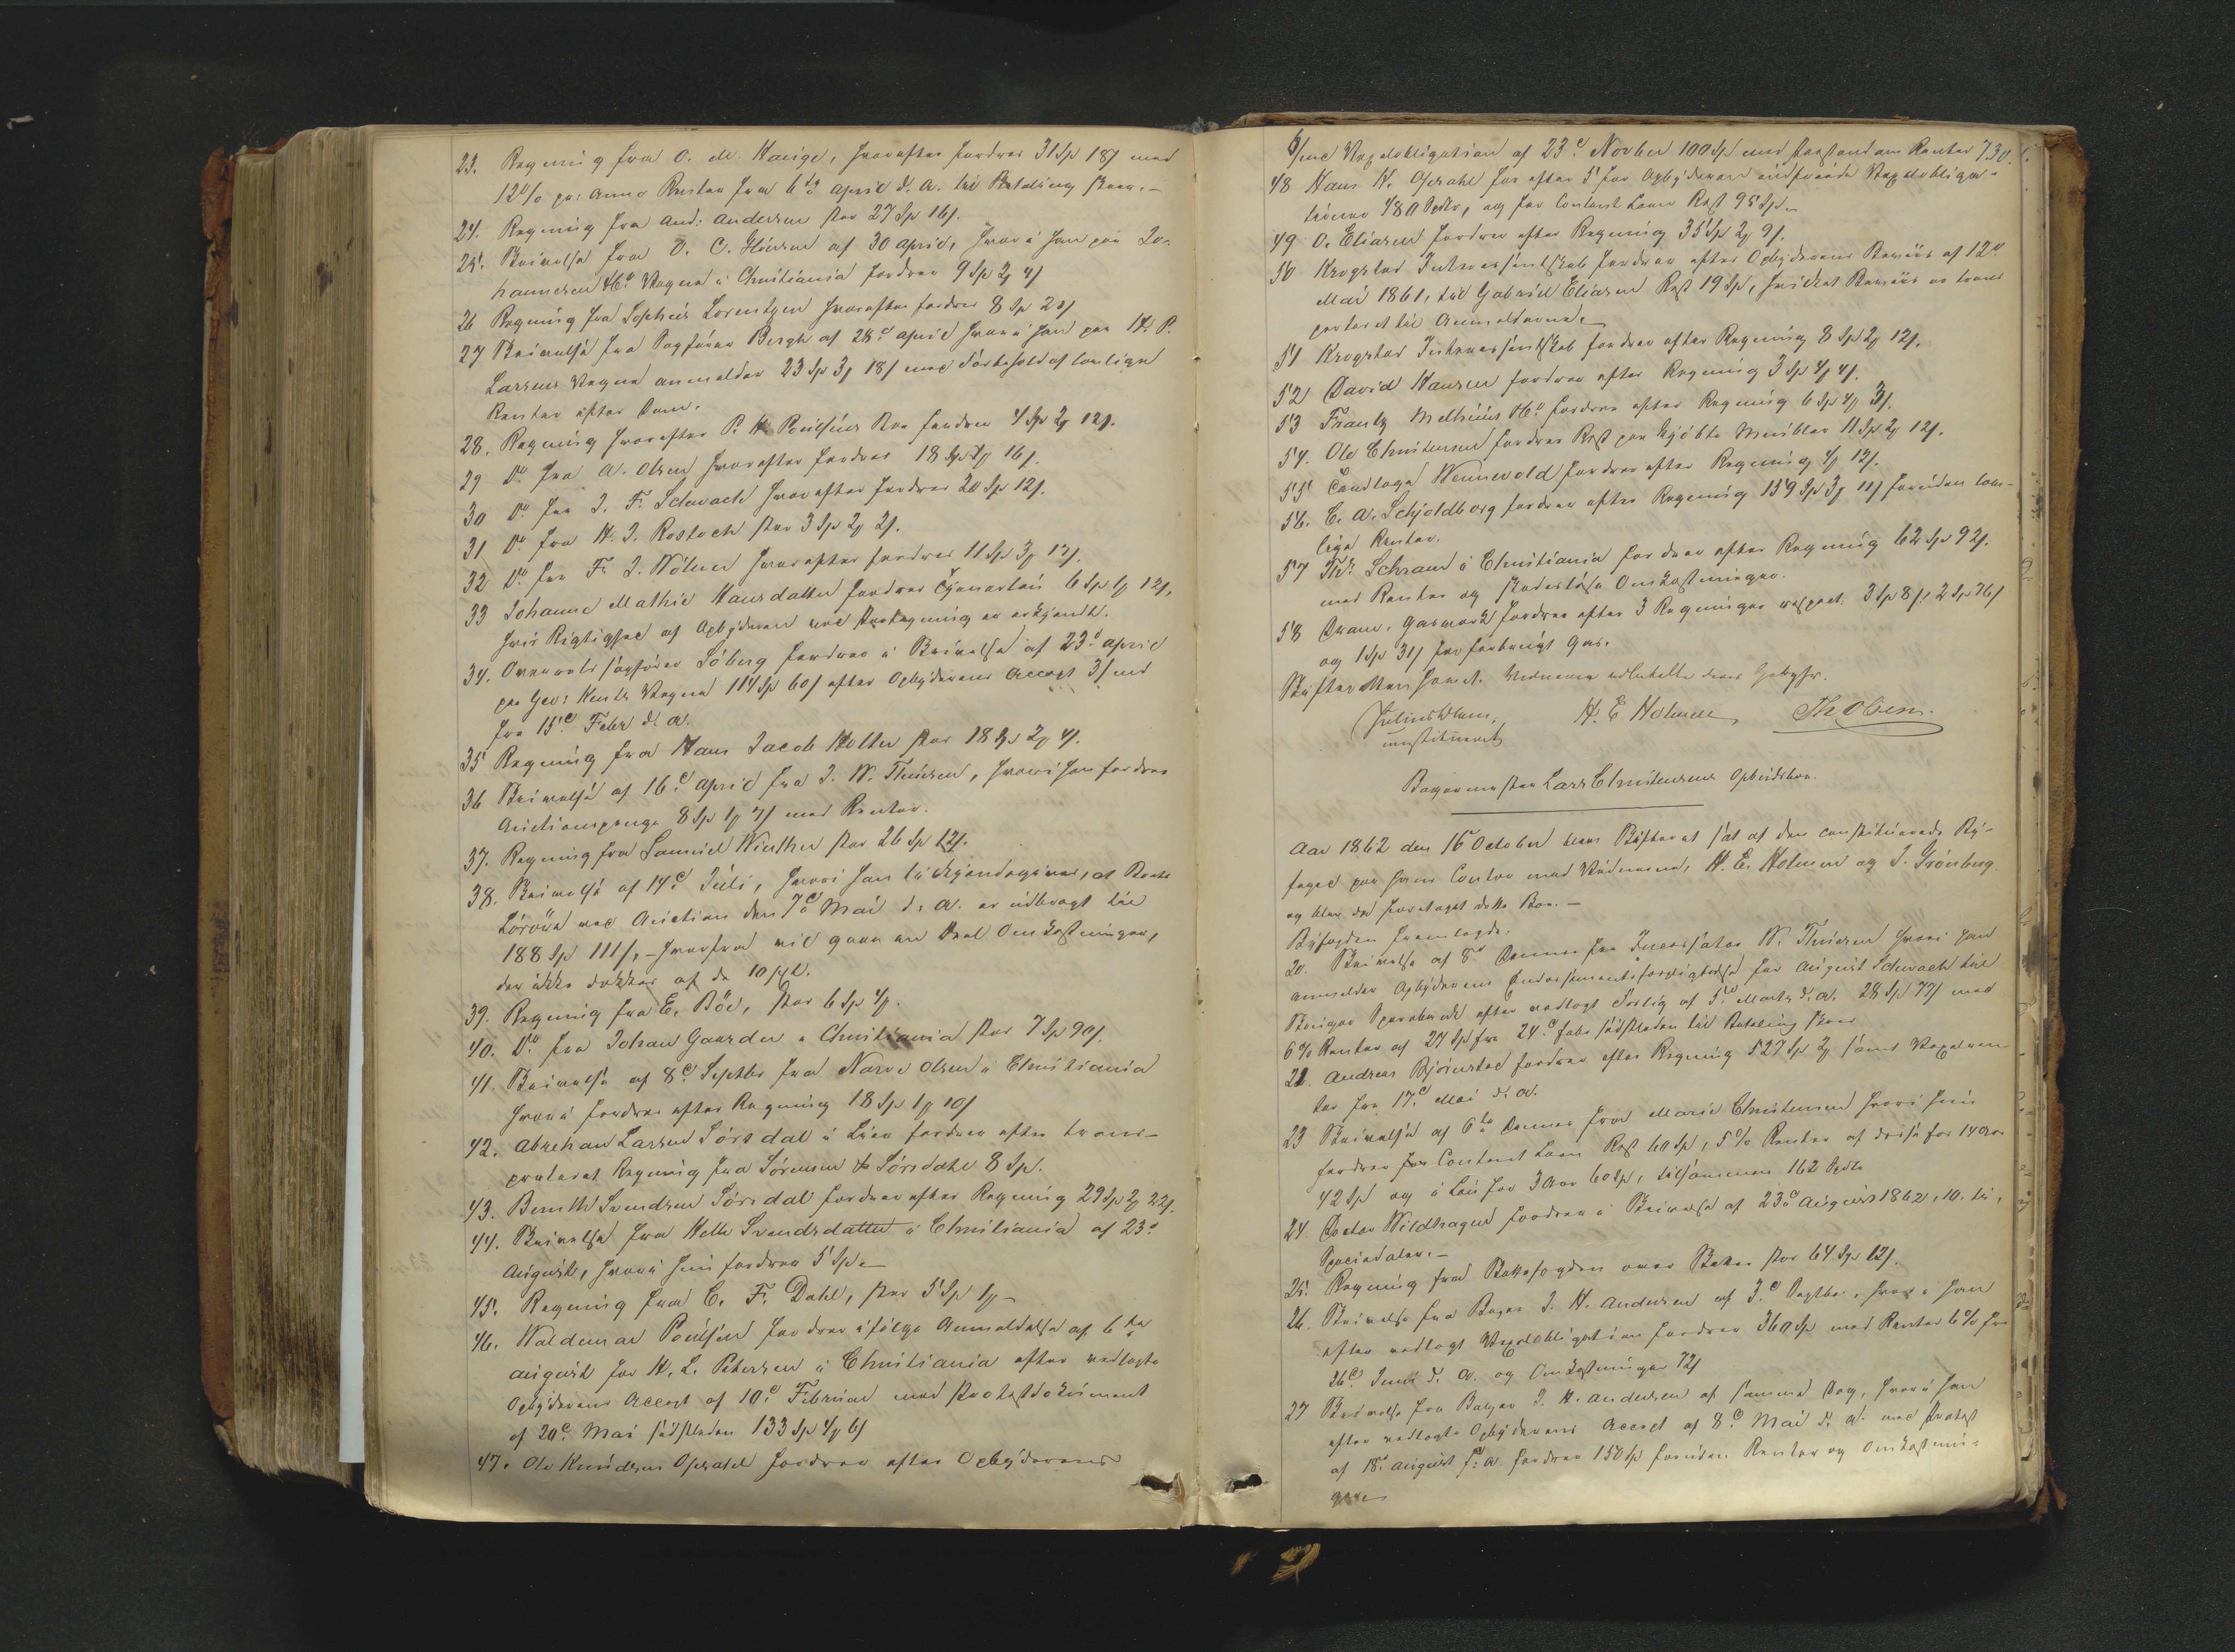 23. Regning fra O. M. Hauge, hvorefter fordres 31 Sp 18 s med
12% pr: anno Renter fra 6te April d. A. til Betaling skeer.-
24. Regning fra And: Andersen stor 27 Sp 16 s.
25. Skrivelse fra O. C. Hansen af 30 April, hvori han paa Jo-
hannesen & Co Vegne i Christiania fordrer 9 Sp 2 4 s
26 Regning fra Sophus Lorentzen hvorefter fordres 8 Sp 2
27 Skrivelse fra Sagfører Bergh af 28d April hvori han paa H. P.
Larsens Vegne anmelder 23 Sp 3 18 s med Forbehold af lovlige
Renter efter Dom.
28. Regning hvorefter P. H. Poulsens Bo fordrer 4 Sp 2 12 s.
29 Do fra A. Olsen hvorefter fordres 18 Sp 16 s.
30 Do fra J. F. Schwach hvorefter fordres 20 Sp 12 s.
31 Do fra H. J. Rostoch stor 3 Sp 2 2 s.
32 Do fra F. J. Wölner hvorefter fordres 11 Sp 3 12 s.
33 Johanne Mathie Hansdatter fordrer Tjenerløn 6 Sp 1 12 s,
hvis Rigtighed af Opbyderen ved Paategning er erkjendt.
34. Overretssagfører Söberg fordrer i Skrivelse af 23d April
paa Geo: Vegne 114 Sp 60 s efter Opbyderens Accept 3/md
fra 15d Febr d. A.
35 Regning fra Hans Jacob Holter stor 18 Sp 2 4 s.
36 Skrivelse af 16d April fra J. W. Thuesen, hvori han fordrer
Auctionspenge 8 Sp 1 7 s med Renter.
37. Regning fra Samuel Winther stor 26 Sp 12 s.
38. Skrivelse af 14d Juli, hvori han tilkjendegiver, at
ved Auction den 7d Mai d. A. er udbragt til
188 Sp 111 s, - hvorfra vil gaae en Deel Omkostninger,
der ikke dækkes af de 10 pCt.
39. Regning fra E. Böe, stor 6 Sp 4.
40. Do fra Johan Gaarder i Christiania stor 7 Sp 90 s.
41. Skrivelse af 8d Septbr fra Narve Olsen i Christiania
hvori fordres efter Regning 18 Sp 1 10 s
42. Abraham Larsen Sörsdal i Lier fordrer efter trans-
porteret Regning fra Sörensen & Sörsdahl 8 Sp.
43. Bernth Svendsen Sörsdal fordrer efter Regning 29 Sp 2 22 s.
44. Skrivelse fra Helle Svendsdatter i Christiania af 23d
August, hvori hun fordrer 5 Sp.-
45. Regning fra C. F. Dahl, stor 5 Sp 1 -
46. Waldemar Poulsen fordrer ifölge Anmeldelse af 6te
August for H. L. Petersen i Christiania efter vedlagte
Opbyderens Accept af 10d Februar med Protestdokument
af 20d Mai sidstleden 133 Sp 4 6 s
47. Ole Knudsen Opsahl fordrer efter Opbyderens
730.
Vexelobligation af 23d Novber 100 Sp med Renter
48 Hans N. Opsahl har efter 5 for Opbyderen indfriede Vexelobliga-
tioner 480 Spdlr, og for Contant Laan Rest 95 Sp.-
49 O. Eliasen fordrer efter Regning 35 Sp 2 9 s.
50 Krogstad Interessentskab fordrer efter Opbyderens Beviis af 12d
Mai 1861, til Gabriel Eliasen Rest 19 Sp, hvilket Beviis er trans
porteret til Anmelderne.
51 Krogstad Interessentskab fordrer efter Regning 8 Sp 2 12 s.
52 David Hansen fordrer efter Regning 3 Sp 4 4 s.
53 Frantz Melhuus & Co fordrer efter Regning 6 Sp 4 3 s.
54. Ole Christensen fordrer Rest paa kjöbte Meubler 11 Sp 2 12 s.
55 Candtoga Wennevold fordrer efter Regning 4 12 s.
56. C. A. Schjoldborg fordrer efter Regning 159 Sp 3 11 s foruden lov-
lige Renter.
57 Thr Schram i Christiania fordrer efter Regning 62 Sp 92 s.
med Renter og skadeslöse Omkostninger.
58 Dram. Gasværk fordrer efter 3 Regninger respect. 3 Sp 8 s, 2 Sp 76 s
og 1 Sp 31 s for forbrugt Gas.
Skifteretten hævet. Vidnerne udbetalte deres Gebyhr.
Julius Blum,
constitueret
H. E. Holmen
Th Olsen.
Bagermester Lars Christensens Opbudsbo.
Aar 1862 den 16 October blev Skifteret sat af den constituerede By-
foged paa hans Contor med Vidnerne, H. E. Holmen og J. Grönberg
og blev da foretaget dette Bo.-
Byfogden fremlagde:
20. Skrivelse af 8d Dennes fra Incassator W. Thuesen hvori han
anmelder Opbyderens Endossementsforpligtelse for August Schwach til
Sparebank efter vedlagt Forlig af 5d Marts d. A. 28 Sp 77 s med
6% Renter af 27 Sp fra 24d Febr sidstleden til Betaling skeer
21. Andreas Björnstad fordrer efter Regning 527 Sp 2 samt Vexelren-
ter fra 17d Mai d. A.
23 Skrivelse af 6te Dennes fra Marie Christensen hvori hun
fordrer for Contant Laan Rest 60 Sp, 5% Renter af disse for 14 Aar
42 Sp og i Lön for 3 Aar 60 Sp, tilsammen 162 Spdlr
24 Doctor Wildhagen fordrer i Skrivelse af 23d August 1862, 10. ti,
Speciedaler.-
25. Regning fra Byfogden over Skatter stor 64 Sp 12 s.
26. Skrivelse fra Bager J. H. Andersen af 3d Septbr., hvori han
efter vedlagt Vexelobligation fordrer 360 Sp med Renter 6% fra
26d Juni d. A. og Omkostninger 72 s
27 Skrivelse fra Bager J. H. Andersen af samme Dag, hvori han
efter vedlagte Opbyderens Accept af 8d Mai d. A. med Protest
af 18. August s. A. fordrer 150 Sp foruden Renter og Omkostnin-
ger